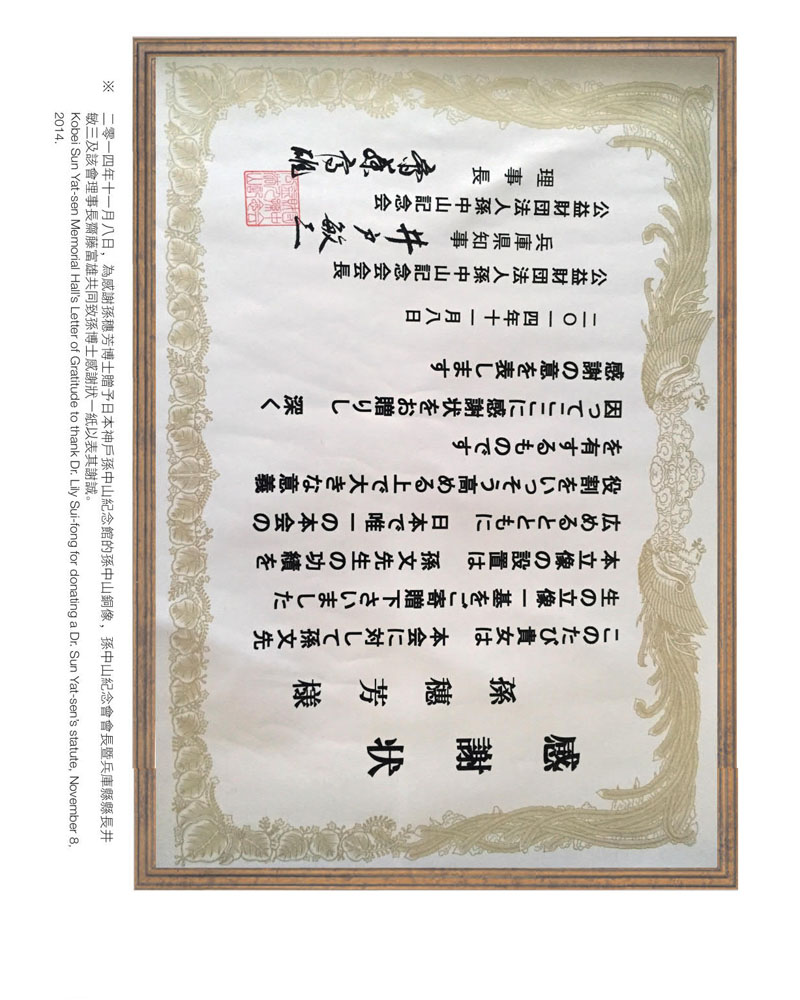 感謝状
孫穂芳様
このたび貴女は 本会に対して孫文先
生の立像一基をご寄贈下さいました
本立像の設置は 孫文先生の功績を
広めるとともに 日本で唯一の本会の
役割をいっそう高める上で大きな意義
を有するものです
因ってここに感謝状をお贈りし 深く
感謝の意を表します
二〇一四年十一月八日
公益財団法人孫中山記念会会長
兵庫県知事 井戸敏三
公益財団法人孫中山記念会
理事長 齋藤富雄
※ 二零一四年十一月八日，為感謝孫穗芳博士贈予日本神戶孫中山紀念館的孫中山銅像，孫中山紀念會會長暨兵庫縣縣長井
敏三及該會理事長齋藤富雄共同致孫博士感謝狀一紙以表其謝誠。
Kobei Sun Yat-sen Memorial Hall's Letter of Gratitude to thank Dr. Lily Sui-fong for donating a Dr. Sun Yat-sen's statute, November 8,
2014.